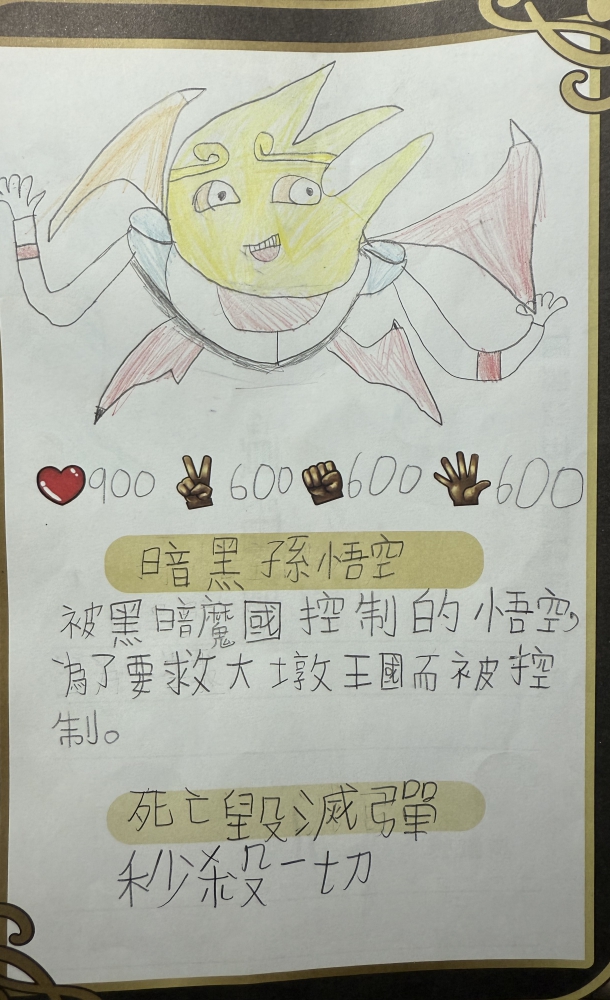 900 600 600 600
暗黑孫悟空
被黑暗魔國控制的悟空,
為了要救大墩王國而被控
制。
死亡毀滅彈
秒殺一切